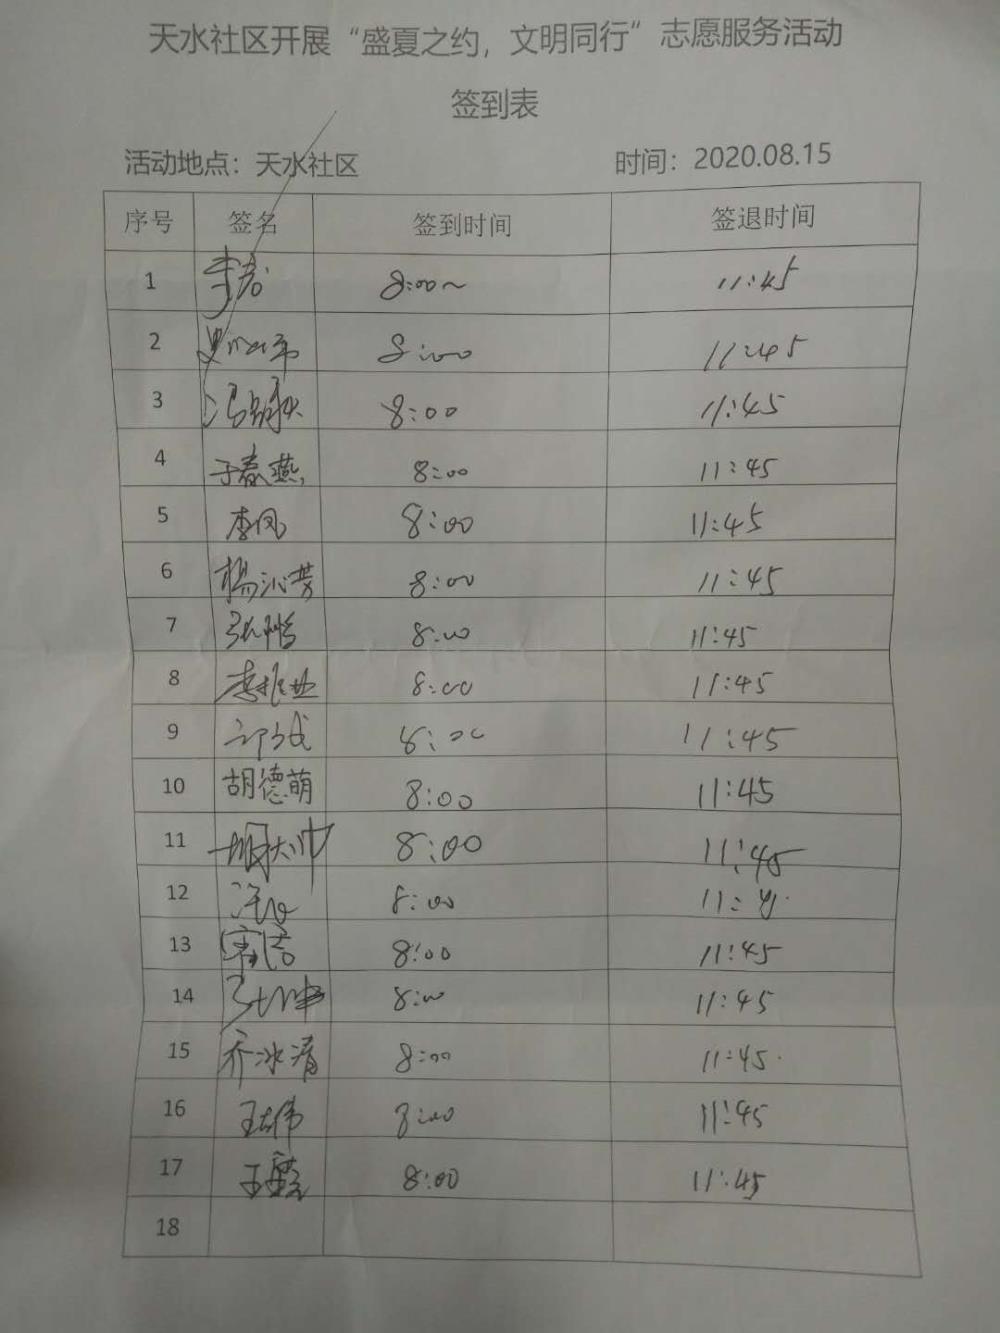 天水社区开展“盛夏之约，文明同行”志愿服务活动
签到表
活动地点：天水社区 时间：2020.08.15
序号 签名 签到时间 签退时间
1 李君 8:00~ 11:45
2 8:00 11:45
3 8:00 11:45
4 于春燕 8:00 11:45
5 李凤 8:00 11:45
6 杨沁芳 8:00 11:45
7 8:00 11:45
8 8:00 11:45
9 8:00 11:45
10 胡德萌 8:00 11:45
11 8:00 11:45
12 8:00 11:45
13 8:00 11:45
14 8:00 11:45
15 乔冰清 8:00 11:45
16 8:00 11:45
17 8:00 11:45
18